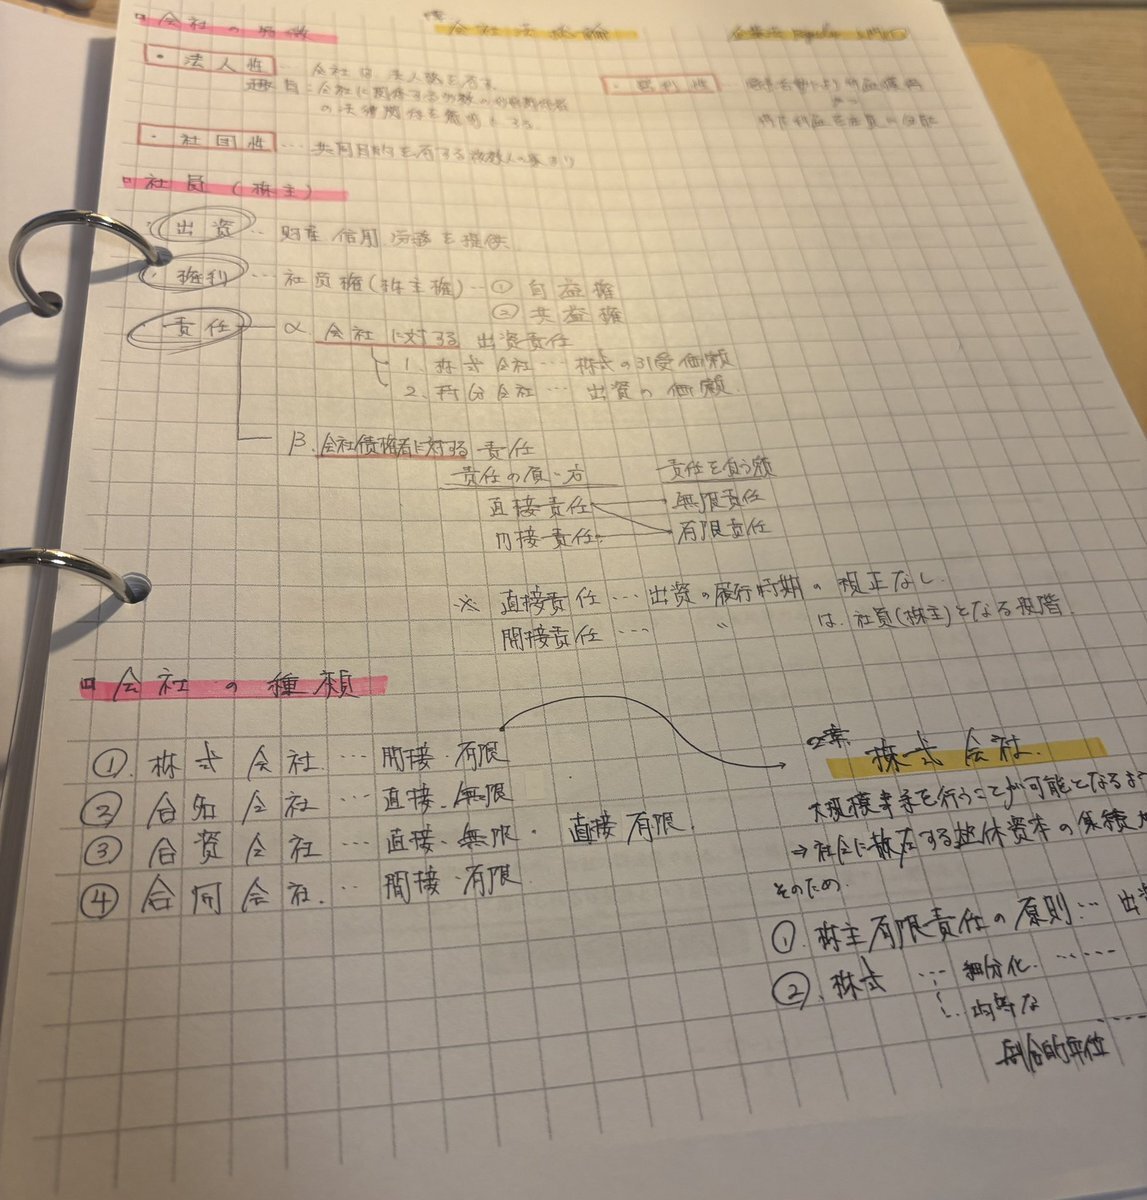 会社の特徴
1章 会社法総論
企業法 Regular
・法人性 … 会社は法人格を有する
趣旨：会社に関係する多数の
の法律関係を簡明にする
・営利性 … 対外的活動により利益獲得
・社団性 … 共同目的を有する複数人の集まり
社員（株主）
・出資 … 財産 信用 労務を提供
・権利 … 社員権(株主権) … ① 自益権
② 共益権
・責任 α. 会社に対する出資責任
1. 株式会社 … 株式の引受価額
2 持分会社 … 出資の価額
β. 会社債権者に対する責任
責任の負い方 責任を負う額
直接責任 無限責任
間接責任 有限責任
※ 直接責任 … 出資の履行時期の規定なし
間接責任 … 〃 は、社員(株主)となる段階
会社の種類
① 株式会社 … 間接・有限
② 合名会社 … 直接・無限
③ 合資会社 … 直接・無限・直接有限
④ 合同会社 … 間接・有限
2章 株式会社
大規模事業を行うことが可能となるよ
→社会に散在する遊休資本の集積
そのため
① 株主有限責任の原則 … 出資
② 株式 … 細分化 ……
… 均等な
割合的単位